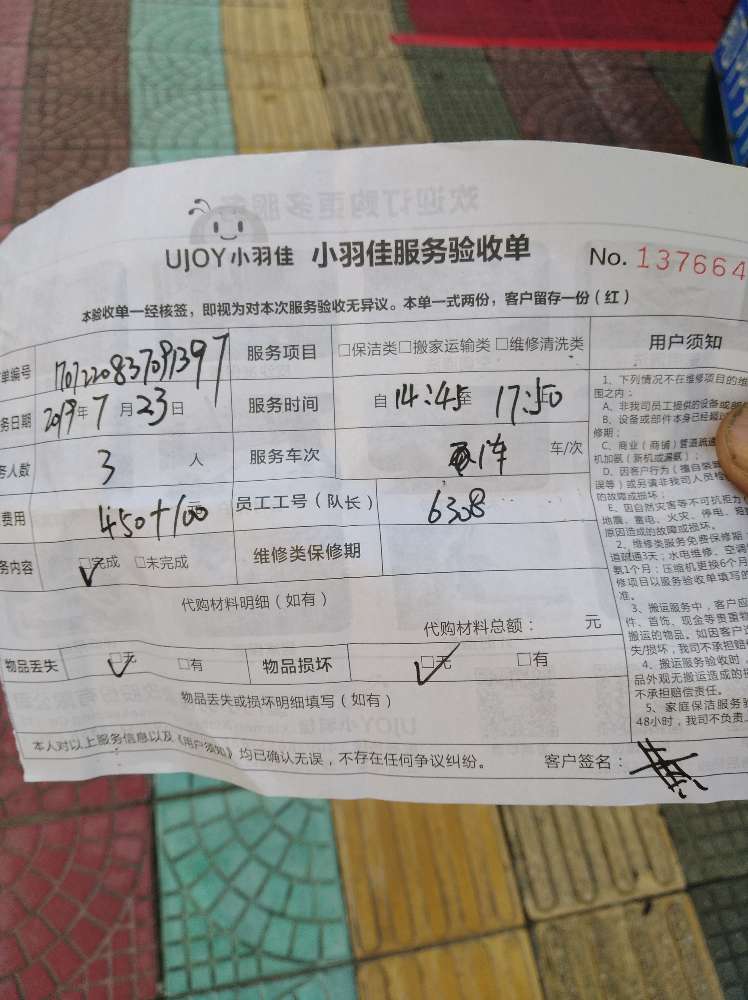 UJOY小羽佳 小羽佳服务验收单 No. 137664
本验收单一经核签，即视为对本次服务验收无异议。本单一式两份，客户留存一份（红）
单编号 服务项目 □保洁类□搬家运输类□维修清洗类 用户须知
务日期 2019年7月23日 服务时间 自14:45至17:50
务人数 3人 服务车次 1车 车/次
费用 450+100元 员工工号（队长） 6308
务内容 □完成 □未完成 维修类保修期
代购材料明细（如有）
代购材料总额： 元
物品丢失 □无 □有 物品损坏 □无 □有
物品丢失或损坏明细填写（如有）
本人对以上服务信息以及《用户须知》均已确认无误，不存在任何争议纠纷。 客户签名：
1、下列情况不在维修项目的维
围之内：
A、非我司员工提供的设备或部
B、设备或部件本身已经超
修期；
C、商业（商铺）管道疏通
机加氨（新机或漏氨）；
D、因客户行为（擅自装
误等）或另请非我司人员
的故障或损坏；
E、因自然灾害等不可抗拒力
地震、雷电、火灾、停电、
原因造成的故障或损坏。
2、维修类服务免费保修期
道疏通3天；水电维修、空调
氨1个月；压缩机更换6个月
修项目以服务验收单填写的
准。
3、搬运服务中，客户应
件、首饰、现金等贵重物
搬运的物品。如因客户
失/损坏，我司不承担赔
4、搬运服务验收时，
品外观无搬运造成的
不承担赔偿责任。
5、家庭保洁服务
48小时，我司不负责